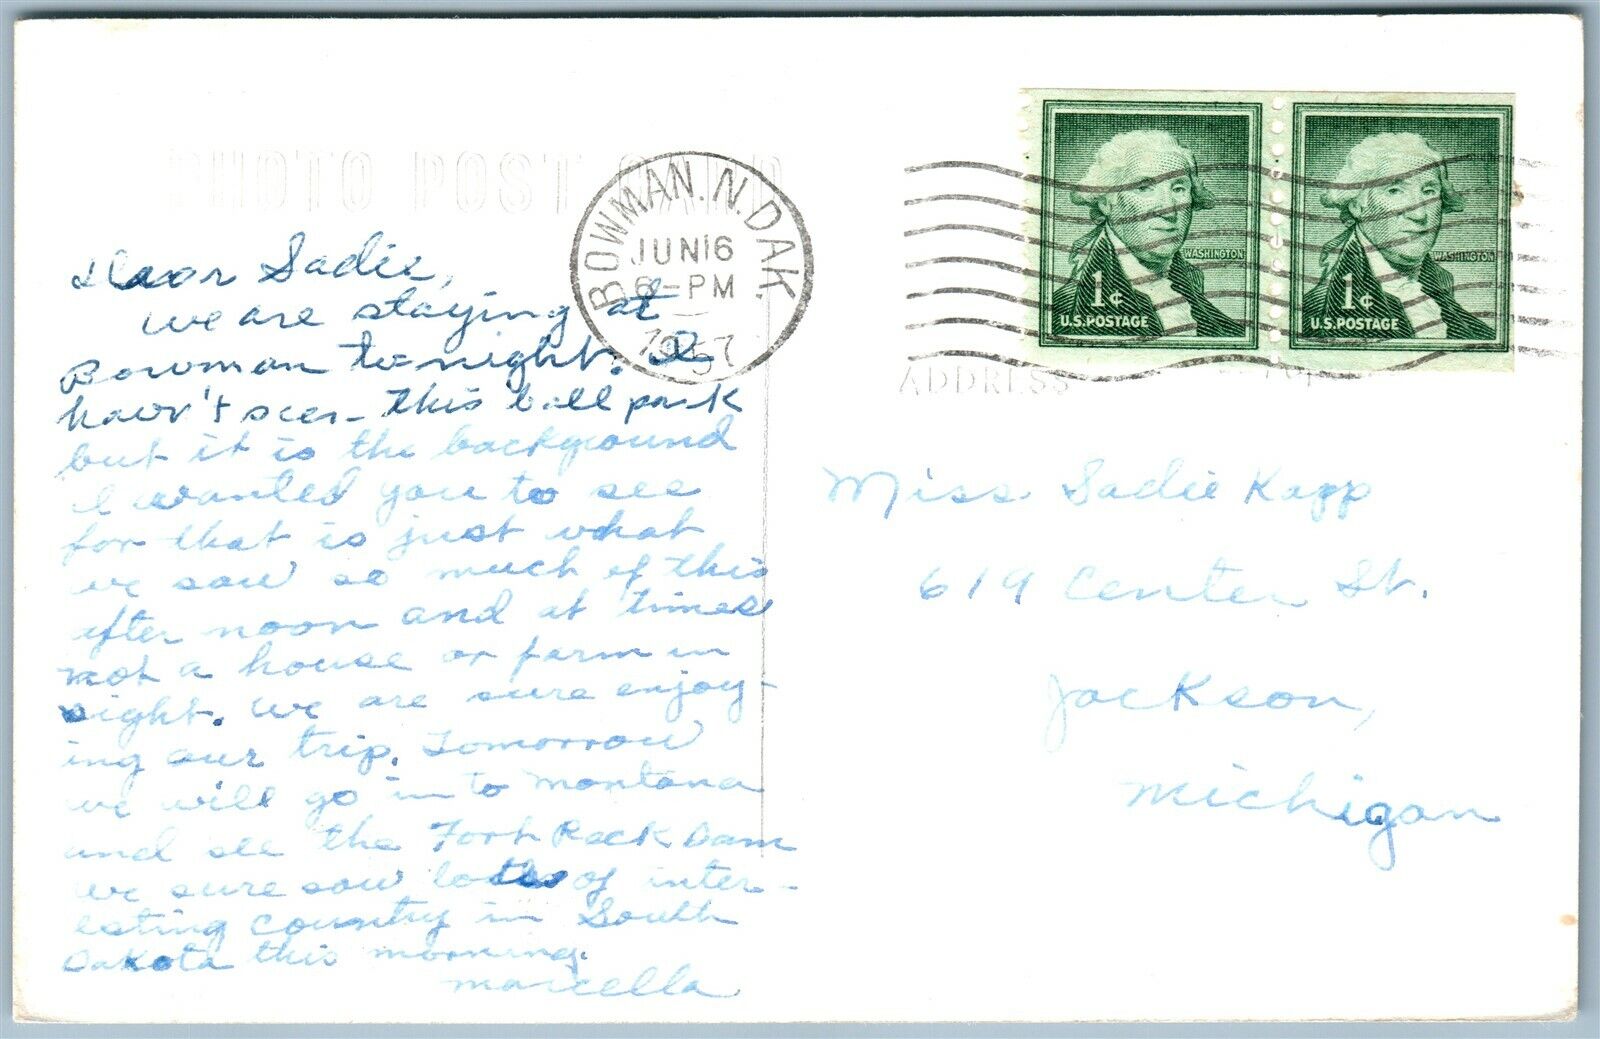 PHOTO POST CARD
BOWMAN. N. DAK.
JUN 16
6-PM
1957
WASHINGTON
1¢
U.S. POSTAGE
WASHINGTON
1¢
U.S. POSTAGE
ADDRESS
Dear Sadie,
We are staying at
Bowman to-night. I
haven't seen this ball park
but it is the background
I wanted you to see
for that is just what
we saw so much of this
after noon and at times
not a house or farm in
sight. We are sure enjoy-
ing our trip. Tomorrow
we will go in to Montana
and see the Fort Peck Dam
We sure saw lots of inter-
esting country in South
Dakota this morning.
Marcella
Miss Sadie Kapp
619 Center St.
Jackson,
Michigan